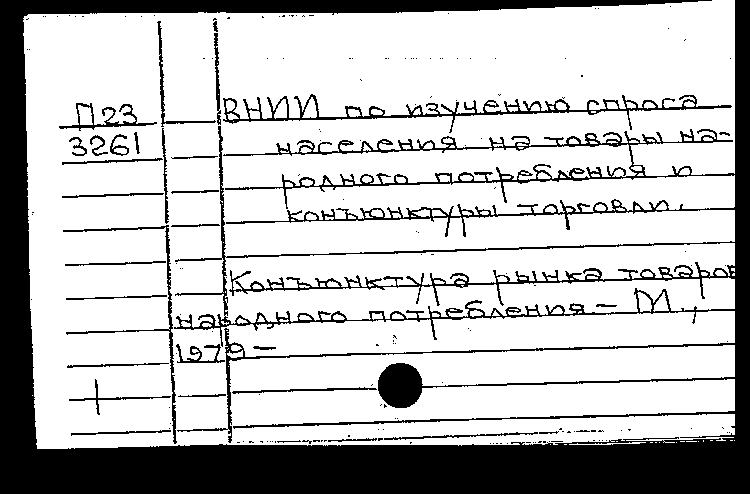 П23 ВНИИ по изучению спроса
3261 населения на товары на-
родного потребления и
конъюнктуры торговли.
Конъюнктура рынка товаров
народного потребления - М.,
1979-